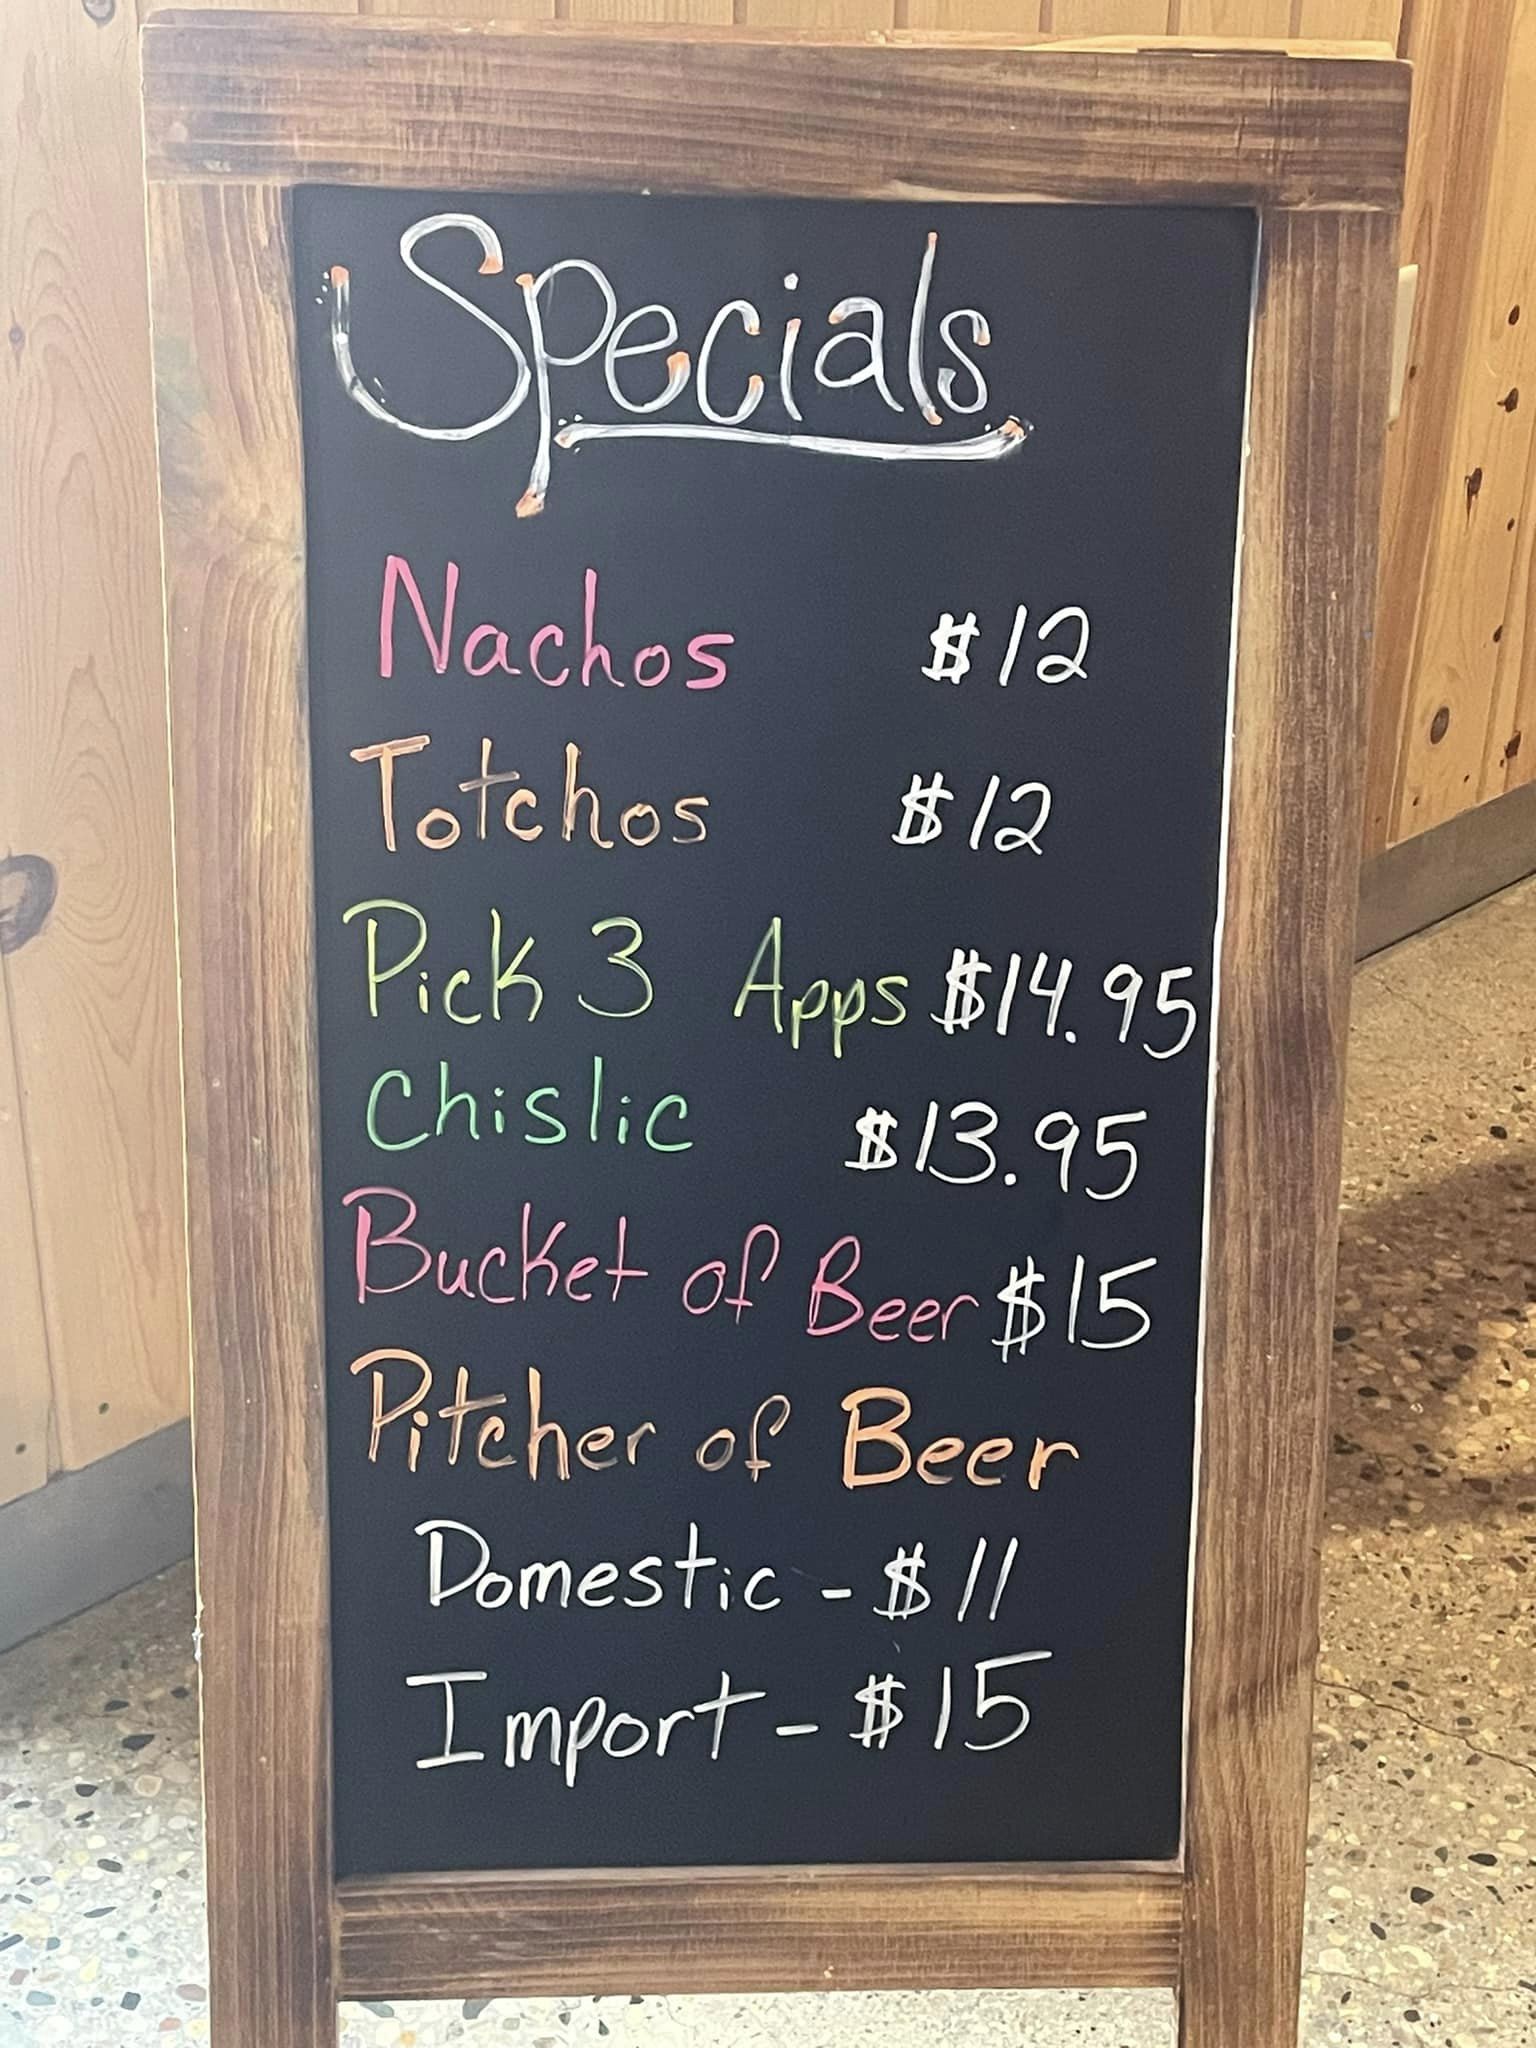 Specials
Nachos $12
Totchos $12
Pick 3 Apps $14.95
Chislic $13.95
Bucket of Beer $15
Pitcher of Beer
Domestic - $11
Import - $15